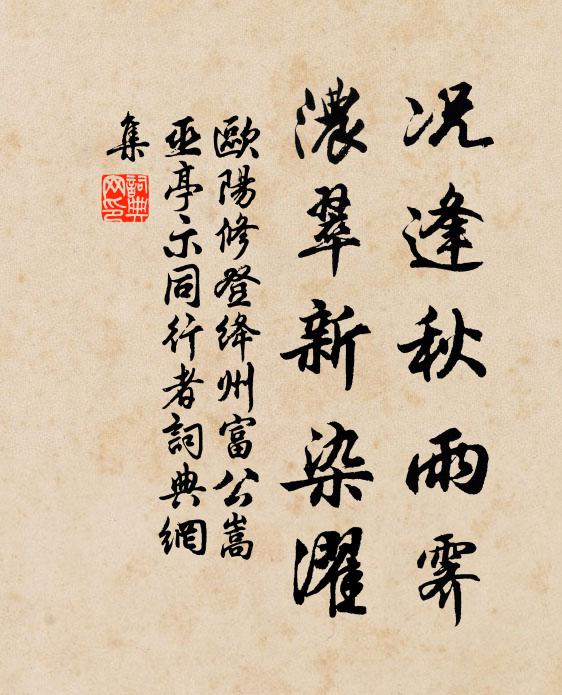 况逢秋雨霽
濃翠新染濯
歐陽修登絳州富公嵩
巫亭示同行者詞典網
集
詞典
网印